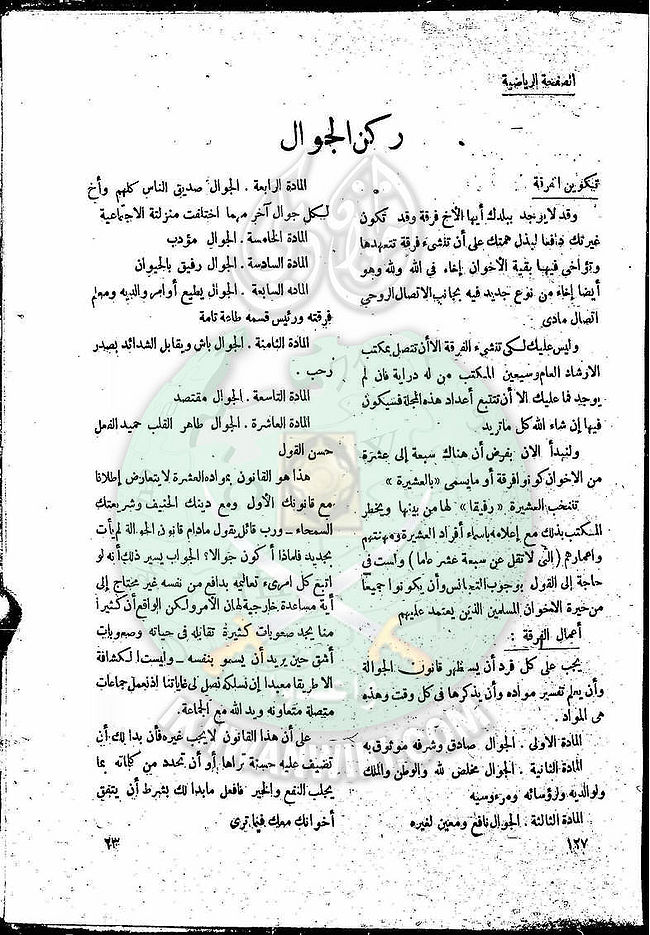 الصفحة الرياضية
ركن الجوال
تكوين الفرقة
وقد لا يوجد ببلدك أيها الأخ فرقة وقد تكون
غيرتك دافعا ليذل همتك على أن تنشىء فرقة تتعهدها
وتؤاخى فيها بقية الأخوان إخاء فى الله ولله وهو
أيضا إخاء من نوع جديد فيه بجانب الاتصال الروحي
اتصال مادى
وليس عليك لكى تنشىء الفرقة الا أن تتصل بمكتب
الارشاد العام وسيعين المكتب من له دراية فان لم
يوجد فما عليك الا أن تتتبع أعداد هذه المجلة فسيكون
فيها إن شاء الله كل ما تريد
ولنبدأ الان بفرض أن هناك سبعة إلى عشرة
من الاخوان كونوا فرقة أو ما يسمى « بالعشيرة »
تنتخب العشيرة « رفيقا » لها من بينها ويخطر
المكتب بذلك مع إعلامه باسماء أفراد العشيرة ومهنتهم
واعمارهم ( التى لا تقل عن سبعة عشر عاما ) ولست فى
حاجة إلى القول بوجوب التجانس وأن يكونوا جميعا
من خيرة الاخوان المسلمين الذين يعتمد عليهم
أعمال الفرقة :
يجب على كل فرد أن يستظهر قانون الجوالة
وأن يعلم تفسير مواده وأن يذكرها فى كل وقت وهذه
هى المواد .
المادة الاولى . الجوال صادق وشرفه موثوق به
المادة الثانية . الجوال مخلص لله والوطن والملك
ولوالديه ولرؤسائه ومرءوسيه
المادة الثالثة . الجوال نافع ومعين لغيره
١٢٧
المادة الرابعة . الجوال صديق الناس كلهم وأخ
لكل جوال آخر مهما اختلفت منزلتة الاجتماعية
المادة الخامسة . الجوال مؤدب
المادة السادسة . الجوال رفيق بالحيوان
المادة السابعة . الجوال يطيع أوامر والديه ومعلم
فرقته ورئيس قسمه طاعة تامة
المادة الثامنة . الجوال باش ويقابل الشدائد بصدر
رحب .
المادة التاسعة . الجوال مقتصد
المادة العاشرة . الجوال طاهر القلب حميد الفعل
حسن القول
هذا هو القانون بمواده العشرة لا يتعارض إطلاقا
مع قانونك الأول ومع دينك الحنيف وشريعتك
السمحاء ــ ورب قائل يقول مادام قانون الجوالة لم يأت
بجديد فلماذا أكون جوالا؟ الجواب يسير ذلك أنه لو
اتبع كل امرىء تعاليمه بدافع من نفسه غير محتاج إلى
أية مساعدة خارجية لهان الأمر ولكن الواقع أن كثيرا
منا يجد صعوبات كثيرة تقابله فى حياته وصعوبات
أشق حين يريد أن يسمو بنفسه ــ وليست الكشافة
الا طريقا معبدا إن نسلكه نصل لى غاياتنا اذ نعمل جماعات
متصلة متعاونه ويد الله مع الجماعة.
على أن هذا القانون لا يجب غيره فأن بدا لك أن
تضيف عليه حسنة تراها أو أن تحدد من كلماته بما
يجلب النفع والخير فافعل ما بدا لك بشرط أن يتفق
أخوانك معك فيما ترى
٢٣